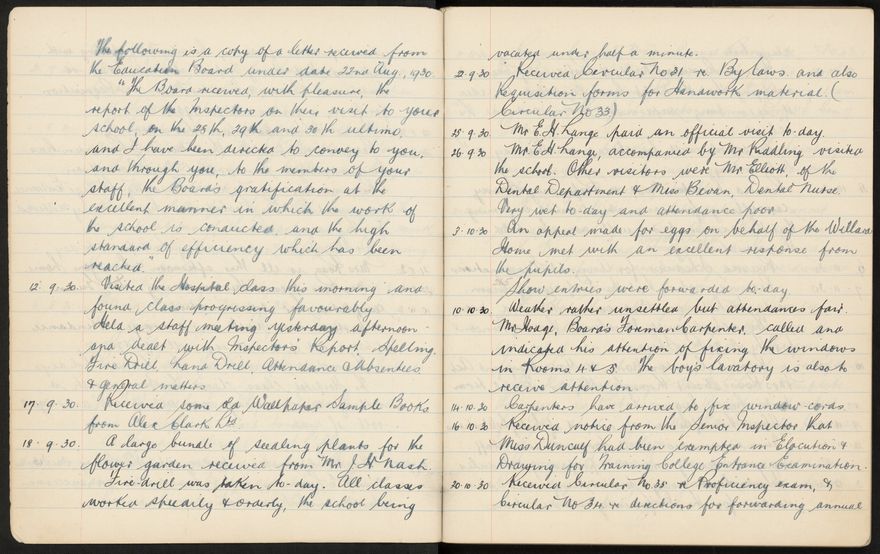 The following is a copy of a letter received from
the Education Board under date 22nd Aug. 1930.
"The Board received, with pleasure, the
report of the Inspectors on their visit to your
school, on the 28th, 29th and 30th ultimo,
and I have been directed to convey to you,
and through you, to the members of your
staff, the Board's gratification at the
excellent manner in which the work of
the school is conducted and the high
standard of efficiency which has been
reached."
12. 9. 30. Visited the Hospital class this morning and
found class progressing favourably.
Held a staff meeting yesterday afternoon
and dealt with Inspectors' Report, Spelling,
Fire Drill, Hand Drill, Attendance & Absentees
& general matters.
17. 9. 30. Received some old Wallpaper Sample Books
from Alex Clark Ltd.
18. 9. 30. A large bundle of seedling plants for the
flower garden received from Mr J. H. Nash.
Fire-drill was taken to-day. All classes
worked speedily & orderly, the school being
vacated under half a minute.
2. 9. 30 Received Circular No 31 re. By laws and also
Requisition forms for Handwork material. (
Circular No 33)
25. 9. 30 Mr E. H. Lange paid an official visit to-day.
26. 9. 30 Mr E. H. Lange, accompanied by Mr Rudling visited
the school. Other visitors were Mr Elliott, of the
Dental Department & Miss Bevan, Dental Nurse.
Very wet to-day and attendance poor.
3. 10. 30 An appeal made for eggs on behalf of the Willard
Home met with an excellent response from
the pupils.
Show entries were forwarded to-day
10. 10. 30. Weather rather unsettled but attendances fair.
Mr Hoage, Board's Foreman Carpenter, called and
indicated his attention of fixing the windows
in Rooms 4 & 5. The boy's lavatory is also to
receive attention.
14. 10. 30 Carpenters have arrived to fix window-cords.
16. 10. 30 Received notice from the Senior Inspector that
Miss Duncalf had been exempted in Elocution &
Drawing for Training College Entrance Examination.
20. 10. 30 Received Circular No. 35 re Proficiency exam, &
Circular No 34 re directions for forwarding annual